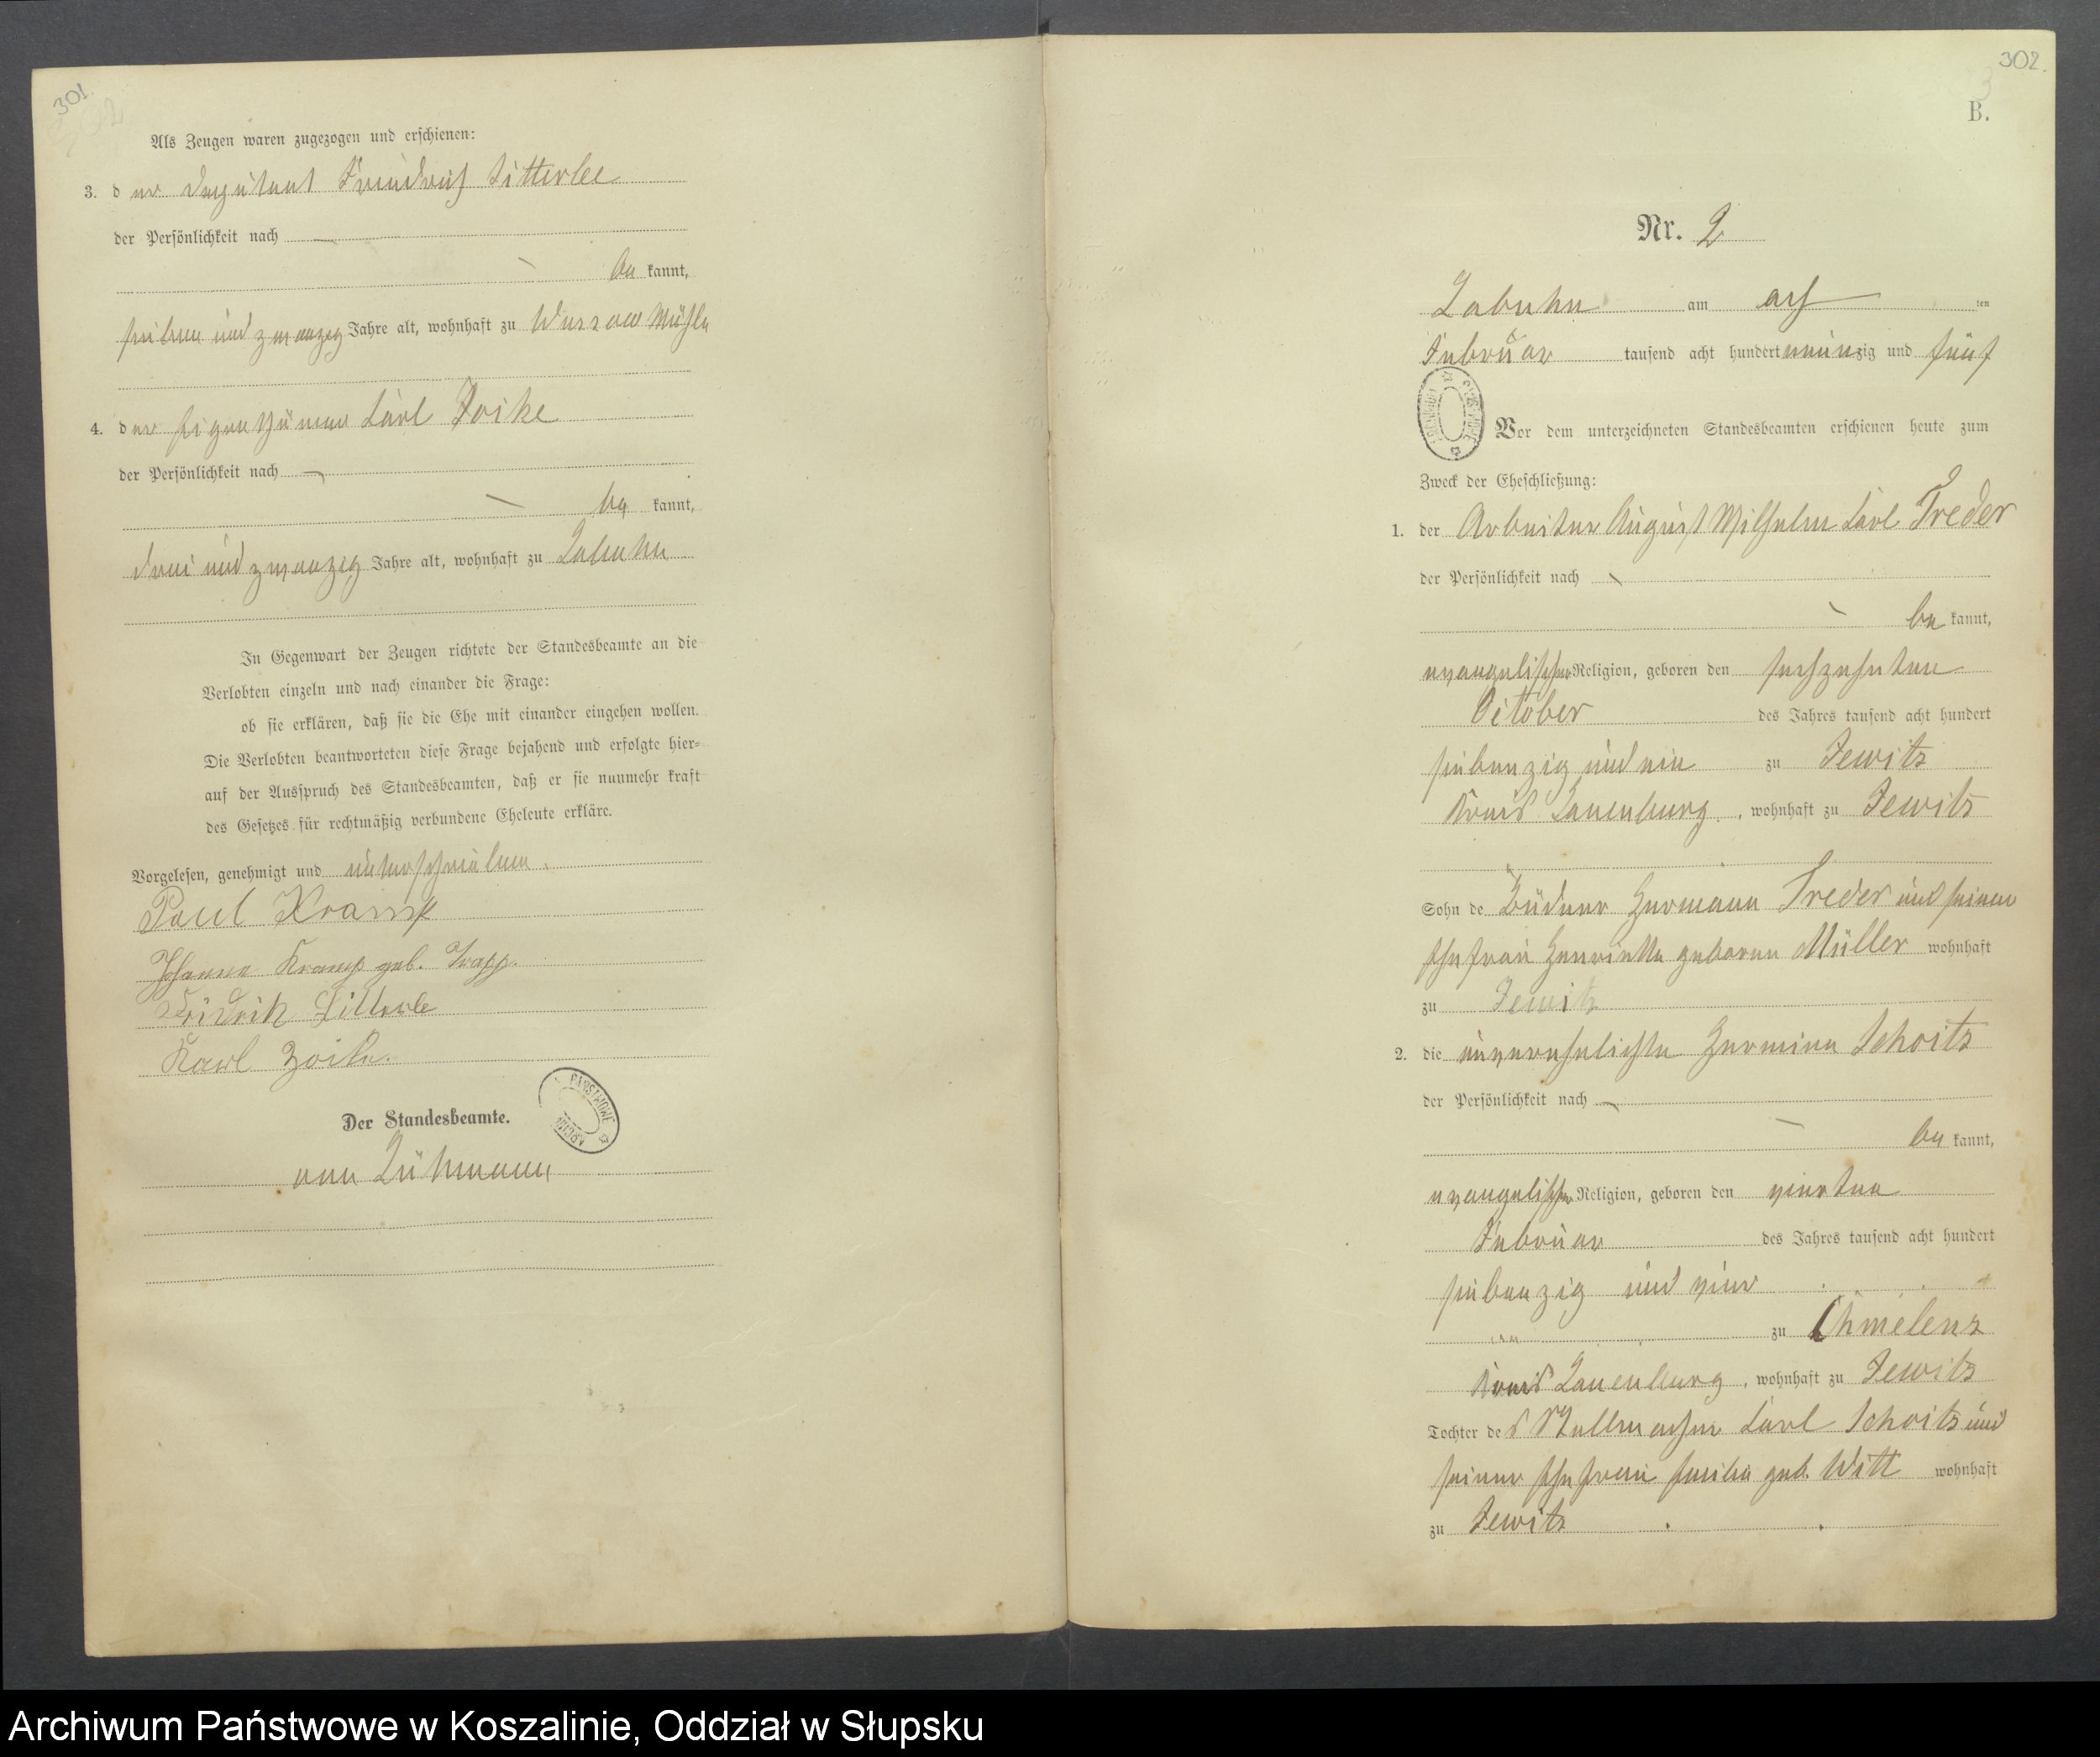 301.
Als Zeugen waren zugezogen und erschienen:
3. der Deputant Friedrich Litterlee
der Persönlichkeit nach
be kannt,
sieben und zwanzig Jahre alt, wohnhaft zu Wussow Mühle
4. der Eigenthümer Carl Zoike
der Persönlichkeit nach
be kannt,
drei und zwanzig Jahre alt, wohnhaft zu Labuhn
In Gegenwart der Zeugen richtete der Standesbeamte an die
Verlobten einzeln und nach einander die Frage:
ob sie erklären, daß sie die Ehe mit einander eingehen wollen.
Die Verlobten beantworteten diese Frage bejahend und erfolgte hier-
auf der Ausspruch des Standesbeamten, daß er sie nunmehr kraft
des Gesetzes für rechtmäßig verbundene Eheleute erkläre.
Vorgelesen, genehmigt und unterschrieben.
Paul Kramp
Johanna Kramp geb. Trapp.
Fridrih Litterle
Karl Zoike.
Der Standesbeamte.
von Lühmann
302.
B.
Nr. 2
Labuhn am acht ten
Februar tausend acht hundert neunzig und fünf
Vor dem unterzeichneten Standesbeamten erschienen heute zum
Zweck der Eheschließung:
1. der Arbeiter August Wilhelm Carl Treder
der Persönlichkeit nach
be kannt,
evangelischer Religion, geboren den sechszehnten
October des Jahres tausend acht hundert
siebenzig und ein zu Jewitz
Kreis Lauenburg, wohnhaft zu Jewitz
Sohn de Büdner Hermann Treder und seiner
Ehefrau Henriette geborene Müller wohnhaft
zu Jewitz
2. die unverehelichte Hermine Schoitz
der Persönlichkeit nach
be kannt,
evangelischer Religion, geboren den vierten
Februar des Jahres tausend acht hundert
siebenzig und vier
zu Chmelenz
Kreis Lauenburg, wohnhaft zu Jewitz
Tochter des Stellmacher Carl Schoitz und
seiner Ehefrau Emilie geb. Witt wohnhaft
zu Jewitz
Archiwum Państwowe w Koszalinie, Oddział w Słupsku